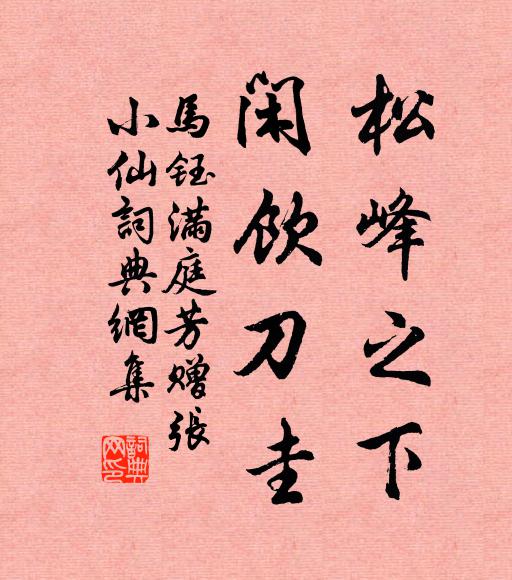 松峰之下
闲飲刀圭
馬鈺满庭芳赠張
小仙詞典網集
詞典
网印